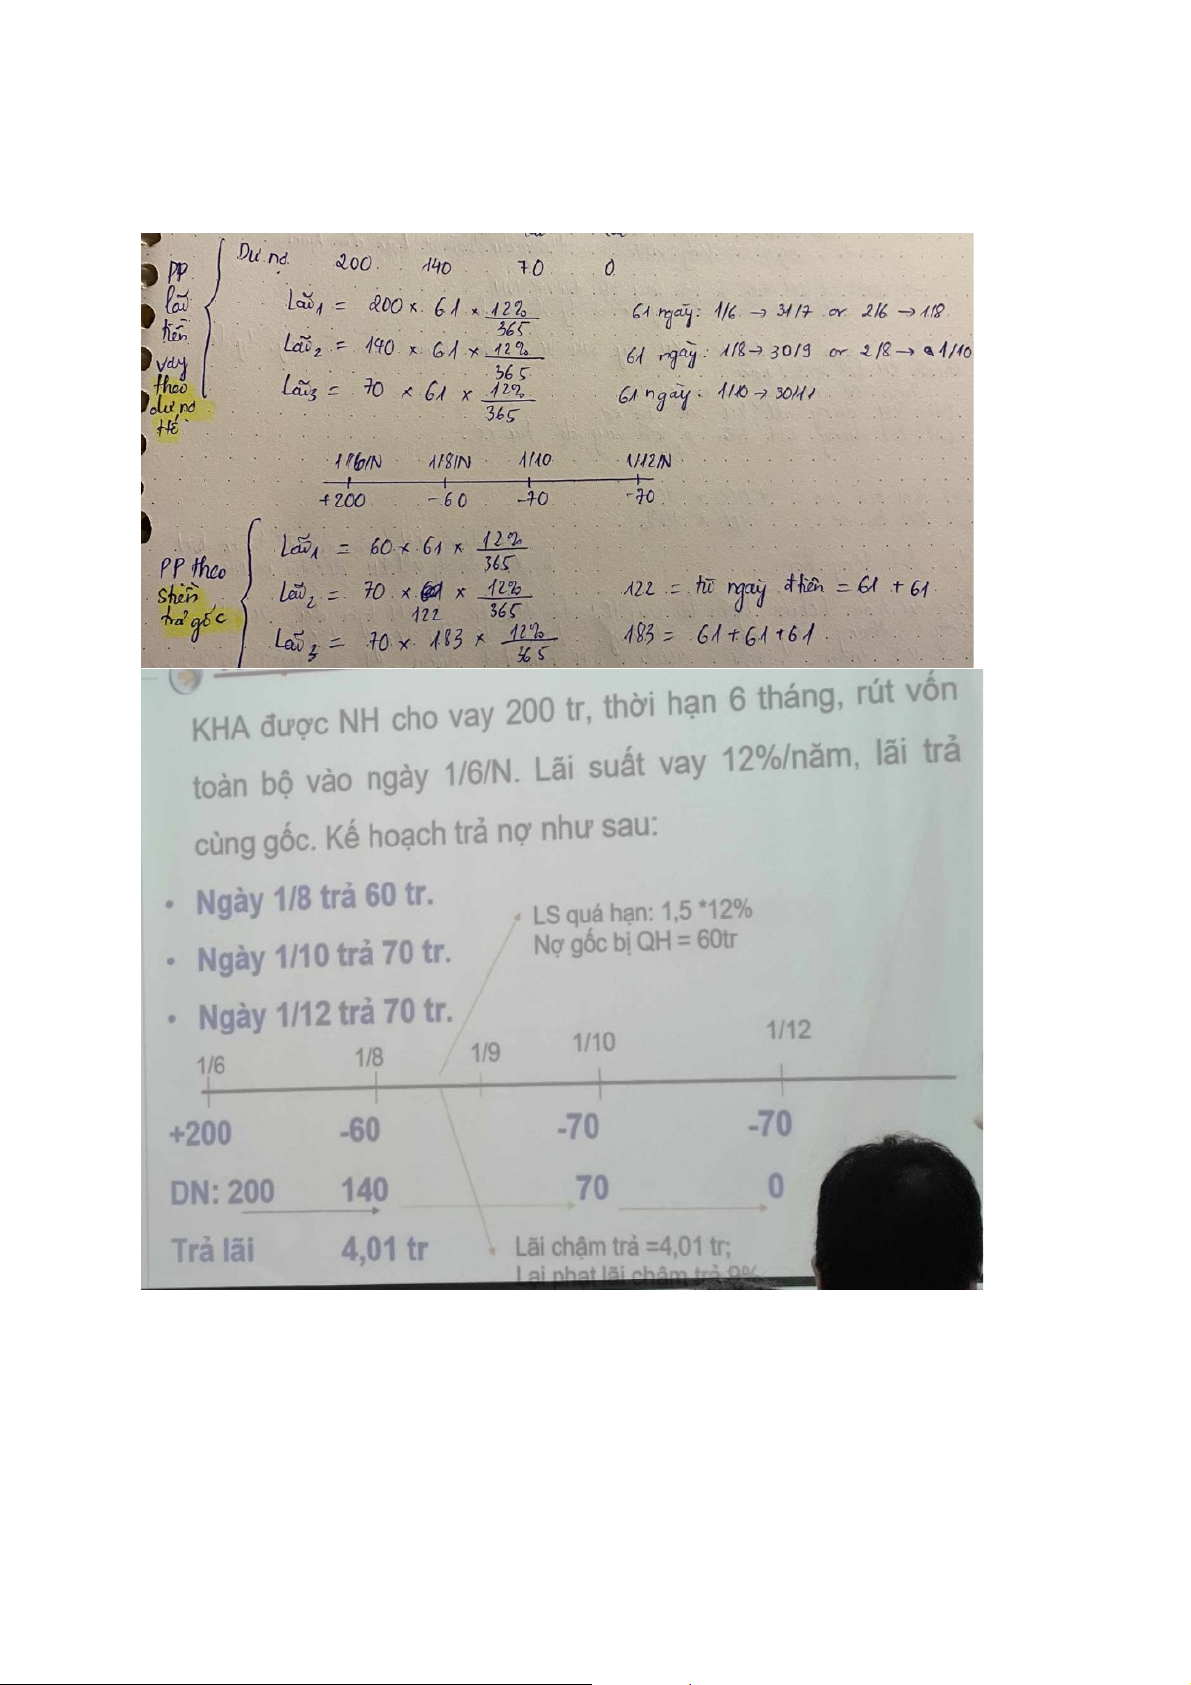 PP lãi tiền vay theo dư nợ tt́e
Dư nợ 200 140 70 0
Lãi1 = 200 x 61 x 12%/365 61 ngày: 1/6 → 31/7 or 2/6 → 1/8
Lãi2 = 140 x 61 x 12%/365 61 ngày: 1/8 → 30/9 or 2/8 → 1/10
Lãi3 = 70 x 61 x 12%/365 61 ngày: 1/10 → 30/11
1/6/N 1/8/N 1/10 1/12/N
+200 -60 -70 -70
PP theo số tiền trả gốc
Lãi1 = 60 x 61 x 12%/365
Lãi2 = 70 x 122 x 12%/365 122 = từ ngày đ tiên = 61 + 61
Lãi3 = 70 x 183 x 12%/365 183 = 61 + 61 + 61
KHA được NH cho vay 200 tr, thời hạn 6 tháng, rút vốn
toàn bộ vào ngày 1/6/N. Lãi suất vay 12%/năm, lãi trả
cùng gốc. Kế hoạch trả nợ như sau:
• Ngày 1/8 trả 60 tr.
LS quá hạn: 1,5 *12%
Nợ gốc bị QH = 60tr
• Ngày 1/10 trả 70 tr.
• Ngày 1/12 trả 70 tr.
1/6 1/8 1/9 1/10 1/12
+200 -60 -70 -70
DN: 200 140 70 0
Trả lãi 4,01 tr Lãi chậm trả =4,01 tr;
Lai phạt lãi chậm trả